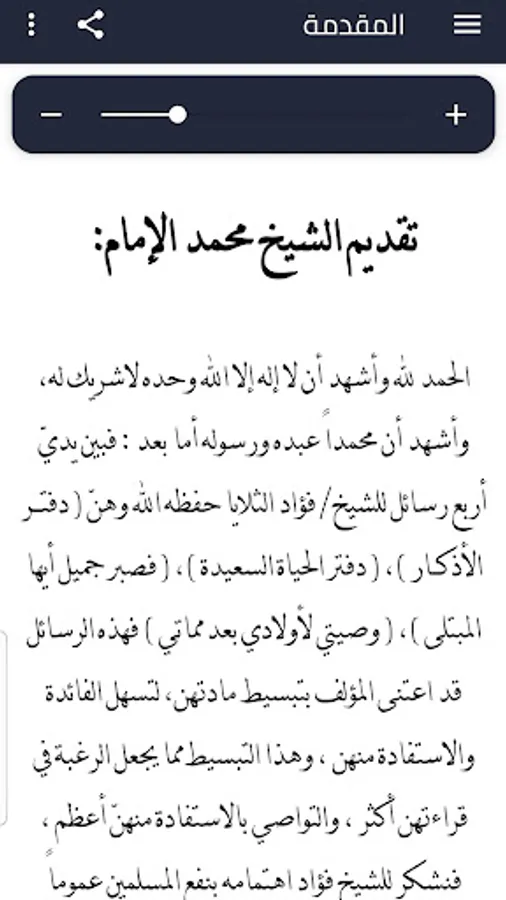 المقدمة
تقديم الشيخ محمد الإمام:
الحمد لله وأشهد أن لا إله إلا الله وحده لا شريك له،
وأشهد أن محمداً عبده ورسوله أما بعد : فبين يديّ
أربع رسائل للشيخ/ فؤاد الثلايا حفظه الله وهنّ ( دفتر
الأذكار )، ( دفتر الحياة السعيدة )، ( فصبر جميل أيها
المبتلى )، ( وصيتي لأولادي بعد مماتي ) فهذه الرسائل
قد اعتنى المؤلف بتبسيط مادتهن، لتسهل الفائدة
والاستفادة منهن ، وهذا التبسيط مما يجعل الرغبة في
قراءتهن أكثر ، والتواصي بالاستفادة منهنّ أعظم ،
فنشكر للشيخ فؤاد اهتمامه بنفع المسلمين عموماً